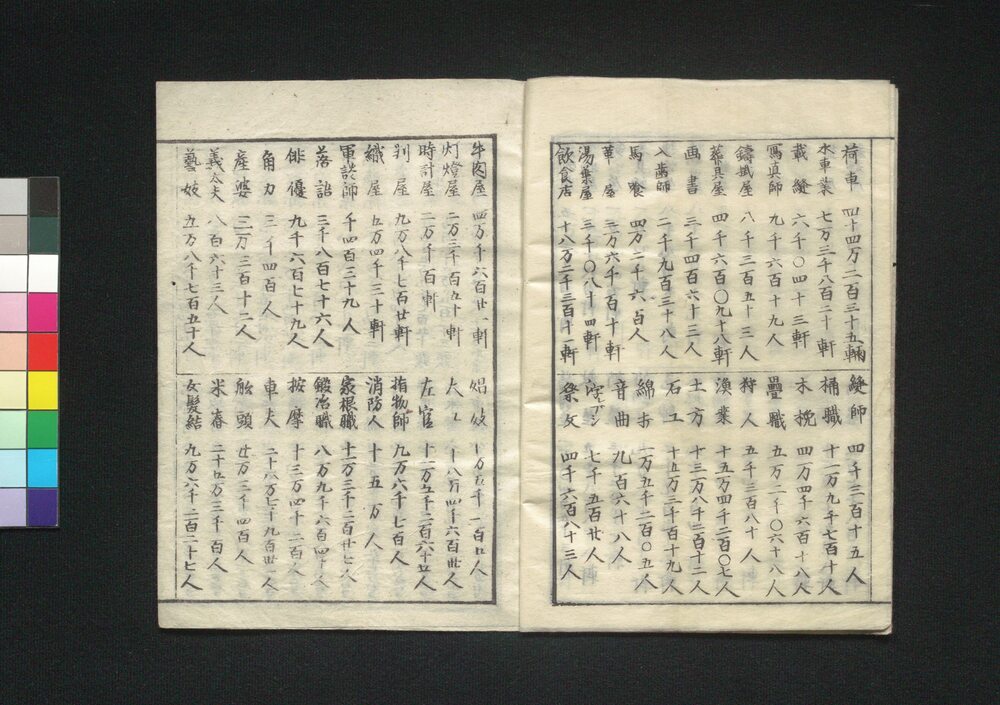 荷車 四十四万二百三十五輛
水車業 七万三千八百二十軒
裁縫 六千〇四十三軒
寫真師 九千六百十九人
鑄掛屋 八千三百五十三人
葬具屋 四千六百〇九十八軒
画書 三千四百六十三人
入歯師 二千九百三十八人
馬喰 四万二千六百人
革屋 三万六千百十軒
湯葉屋 三千〇八十四軒
飲食店 十八万二千三百十一軒
縫師 四千三百十五人
桶職 十一万九千七百十人
木挽 四万四千六百十八人
疊職 五万二千〇六十八人
狩人 五千三百八十人
漁業 十五万四千二百〇七人
土方 十三万八千三百十二人
石工 十五万三千百十九人
綿打 一万五千二百〇五人
音曲 九百六十八人
七千五百廿人
祭文 四千六百八十三人
牛肉屋 四万千六百廿一軒
灯燈屋 二万三千百五十軒
時計屋 二万千百軒
判屋 九万八千七百廿軒
織屋 五万四千三十軒
軍談師 千四百三十九人
落語 三千八百七十六人
俳優 九千六百七十九人
角力 三千四百人
産婆 三万三百十二人
義太夫 八百六十三人
藝妓 五万八千七百五十人
娼妓 十万五千一百廿人
大工 十八万四千六百卅人
左官 十二万五千二百六十五人
指物師 九万六千七百人
消防人 十五万人
家根職 十一万三千二百廿七人
鍛冶職 八万九千六百四十人
按摩 十三万四千二百人
車夫 二十六万七千九百卅一人
船頭 廿万三千四百人
米舂 二十五万三千百人
女髪結 九万六千二百二十七人